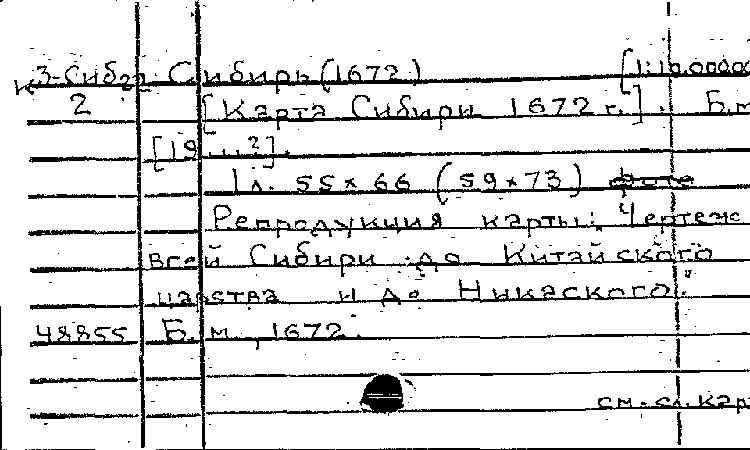 К3-Сиб Сибирь (1672) [1:10.00000
2 [Карта Сибири 1672 г.]. Б.м
[19...?].
1 л. 55×66 (59×73) фото
Репродукция карты: „Чертеж
всей Сибири до Китайского
царства и до Никаского".
48855 Б.м., 1672.
см. сл. кар